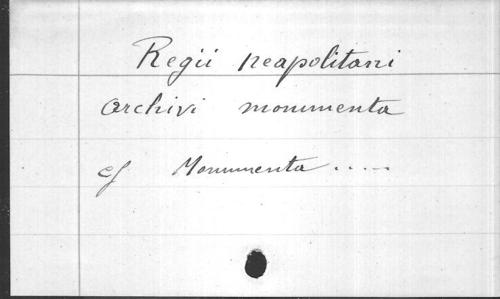 Regii neapolitani
archivi monumenta
cf Monumenta .....